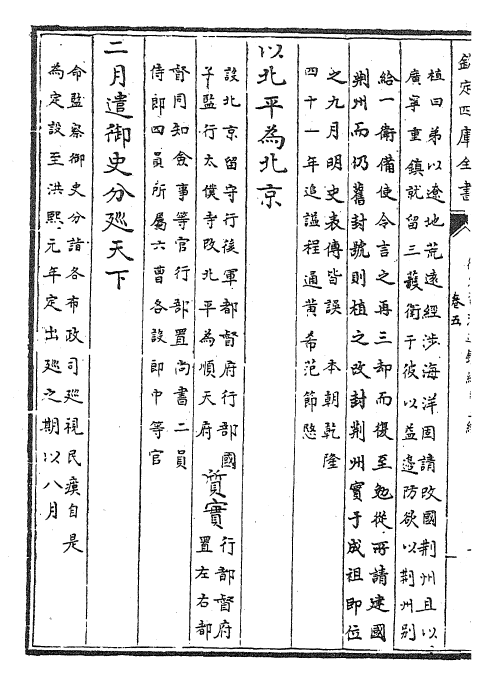 欽定四庫全書
卷五
植曰弟以遼地荒遠經涉海洋固請改國荆州且以
廣寧重鎮就留三護衛于彼以益邊防欲以荆州別
給一衛備使令言之再三却而復至勉從所請建國
荆州而仍舊封號則植之改封荆州實于成祖即位
之九月明史表傳皆誤 本朝乾隆
四十一年追謚程通黃希范節愍
以北平為北京
設北京留守行後軍都督府行部國
子監行太僕寺改北平為順天府
質實
行都督府
置左右都
督同知僉事等官行部置尚書二員
侍郎四員所屬六曹各設郎中等官
二月遣御史分廵天下
命監察御史分詣各布政司廵視民瘼自是
為定設至洪熙元年定出廵之期以八月